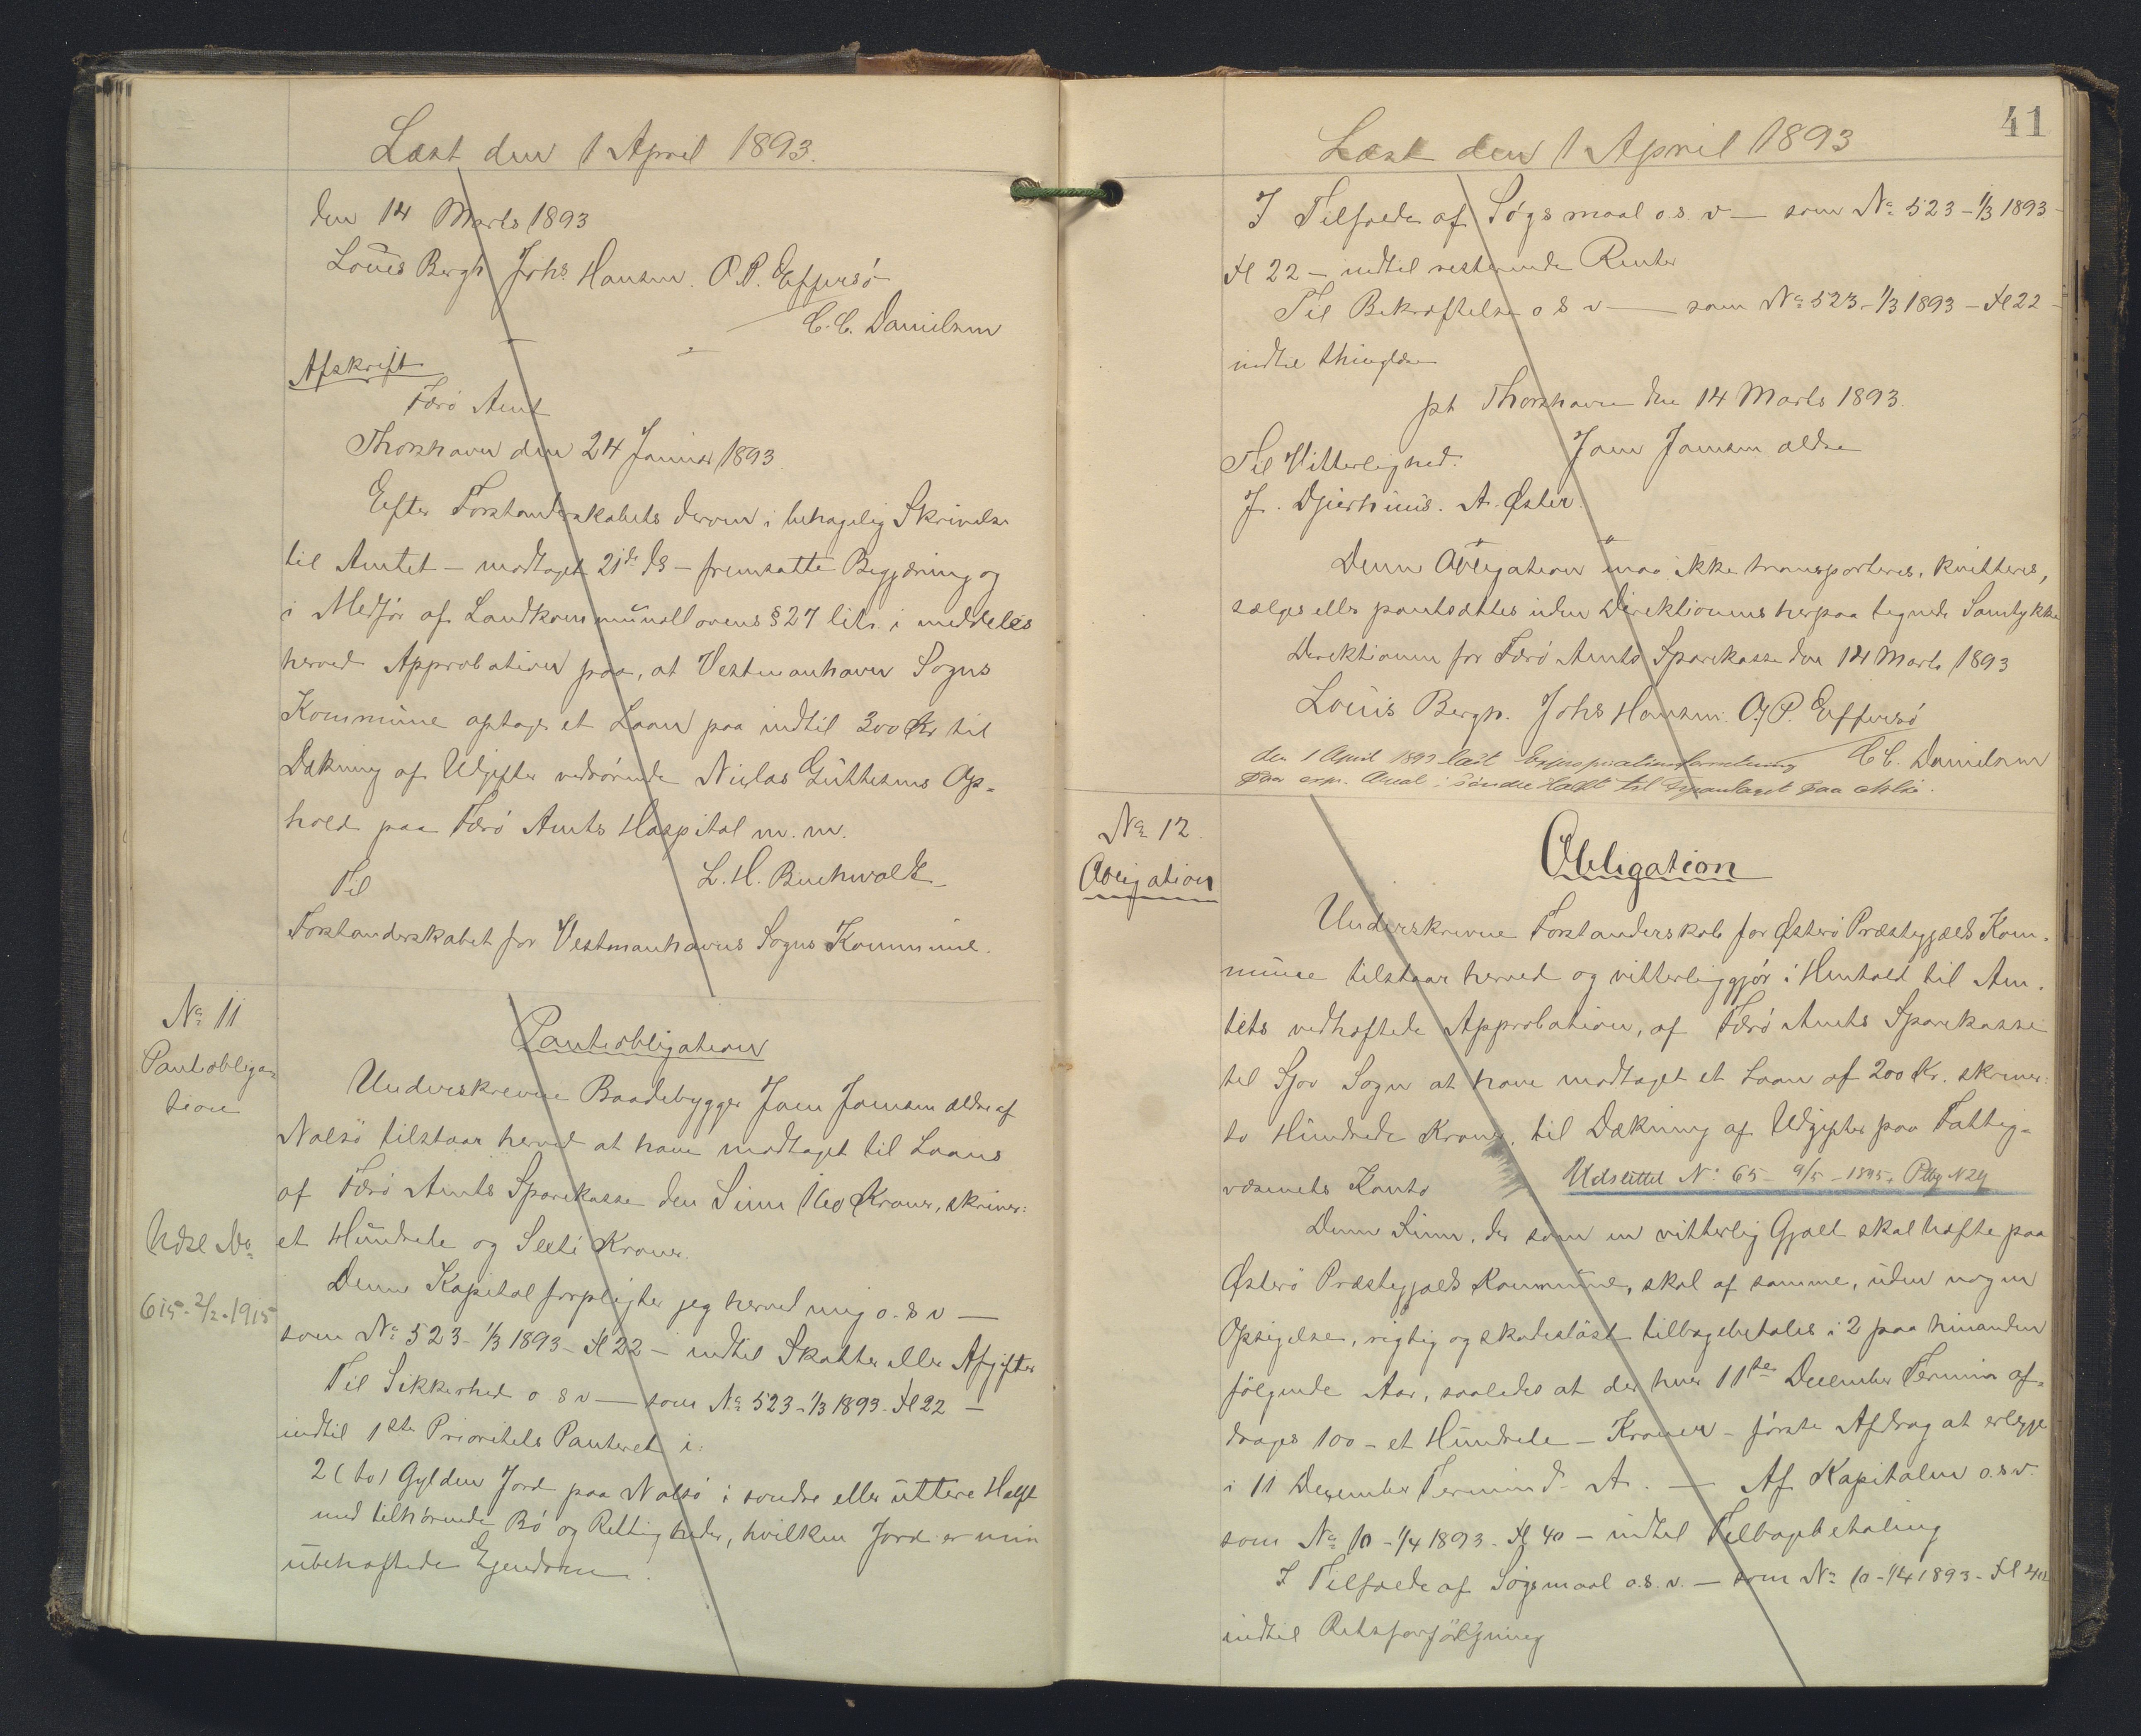 Læst den 1 April 1893.
den 14 Marts 1893
Louis Bergh Johs. Hansen. O. P. Effersö
C. C. Danielsen
Afskrift
Færö Amt
Thorshavn den 24 Januar 1893
Efter Forstanderskabets derom i behagelig Skrivelse
til Amtet – modtaget 21de ds – fremsatte Begjæring og
i Medför af Landkommunallovens § 27 litr. i meddeles
herved Approbation paa, at Vestmanhavn Sogns
Kommune optager et Laan paa indtil 300 Kr til
Dækning af Udgifter vedrörende Niclas Guttesens Op=
hold paa Færö Amts Hospital m. m.
L. H. Buchwaldt
Til
Forstanderskabet for Vestmanhavns Sogns Kommune.
No 11
Pantobliga=
tion
Pantobligation
Underskrevne Baadebygger Joen Joensen ældre af
Nolsö tilstaar herved at have modtaget til Laans
af Færö Amts Sparekasse den Sum 160 Kroner, skriver:
et Hundrede og Sexti Kroner.
Udsl No
615 - 2/2 - 1915
Denne Kapital forpligter jeg herved mig o. s v —
som No 523 - 1/3 1893 - Fl 22 – indtil Skatter eller Afgifter
Til Sikkerhed o s v — som No 523 - 1/3 1893. Fl 22 –
indtil 1ste Prioritets Panteret i:
2 (to) Gylden Jord paa Nolsö i söndre eller uttere Halft
med tilhörende Bö og Rettigheder, hvilken Jord er min
ubehæftede Ejendom.
41
Læst den 1 April 1893
I Tilfælde af Sögsmaal o. s. v — som No 523 - 1/3 1893 -
Fl 22 – indtil resterende Renter
Til Bekræftelse o s v — som No 523 - 1/3 1893 - Fl 22 -
indtil thinglæse
pt Thorshavn den 14 Marts 1893.
Joen Joensen ældre
Til Vitterlighed:
J. Djurhuus. A. Öster.
Denne Obligation maa ikke transporteres, kvitteres,
sælges eller pantsættes uden Direktionens herpaa tegnede Samtykke
Direktionen for Færö Amts Sparekasse den 14 Marts 1893
Louis Bergh. Johs Hansen. O. P. Effersö
C C. Danielsen
den 1 April 1893 læst Expropriationsforretning
paa expr. Areal i Söndre Halft til Fyranlæget paa Nolsö.
No 12.
Obligation
Obligation
Underskrevne Forstanderskab for Österö Præstegjælds Kom=
mune tilstaar herved og vitterliggjör i Henhold til Am=
tets vedhæftede Approbation, af Færö Amts Sparekasse
til Sjov Sogn at have modtaget et Laan af 200 Kr. skriver:
to Hundrede Kroner, til Dækning af Udgifter paa Fattig=
væsenets Konto
Udslettet No 65 - 9/5 - 1895.
Denne Sum, der som en vitterlig Gjæld skal hæfte paa
Österö Præstegjælds Kommune, skal af samme, uden nogen
Opsigelse, rigtig og skadeslöst tilbagebetales i 2 paa hinanden
fölgende Aar, saaledes at der hver 11te December Termin af=
drages 100 – et Hundrede – Kroner – förste Afdrag at erlægge
i 11 December Termin d. A. — Af Kapitalen o. s. v.
som No 10 - 1/4 1893. Fl 40 – indtil Tilbagebetaling
I Tilfælde af Sögsmaal o. s. v. — som No 10 - 1/4 1893 - Fl 40
indtil Retsforfölgning